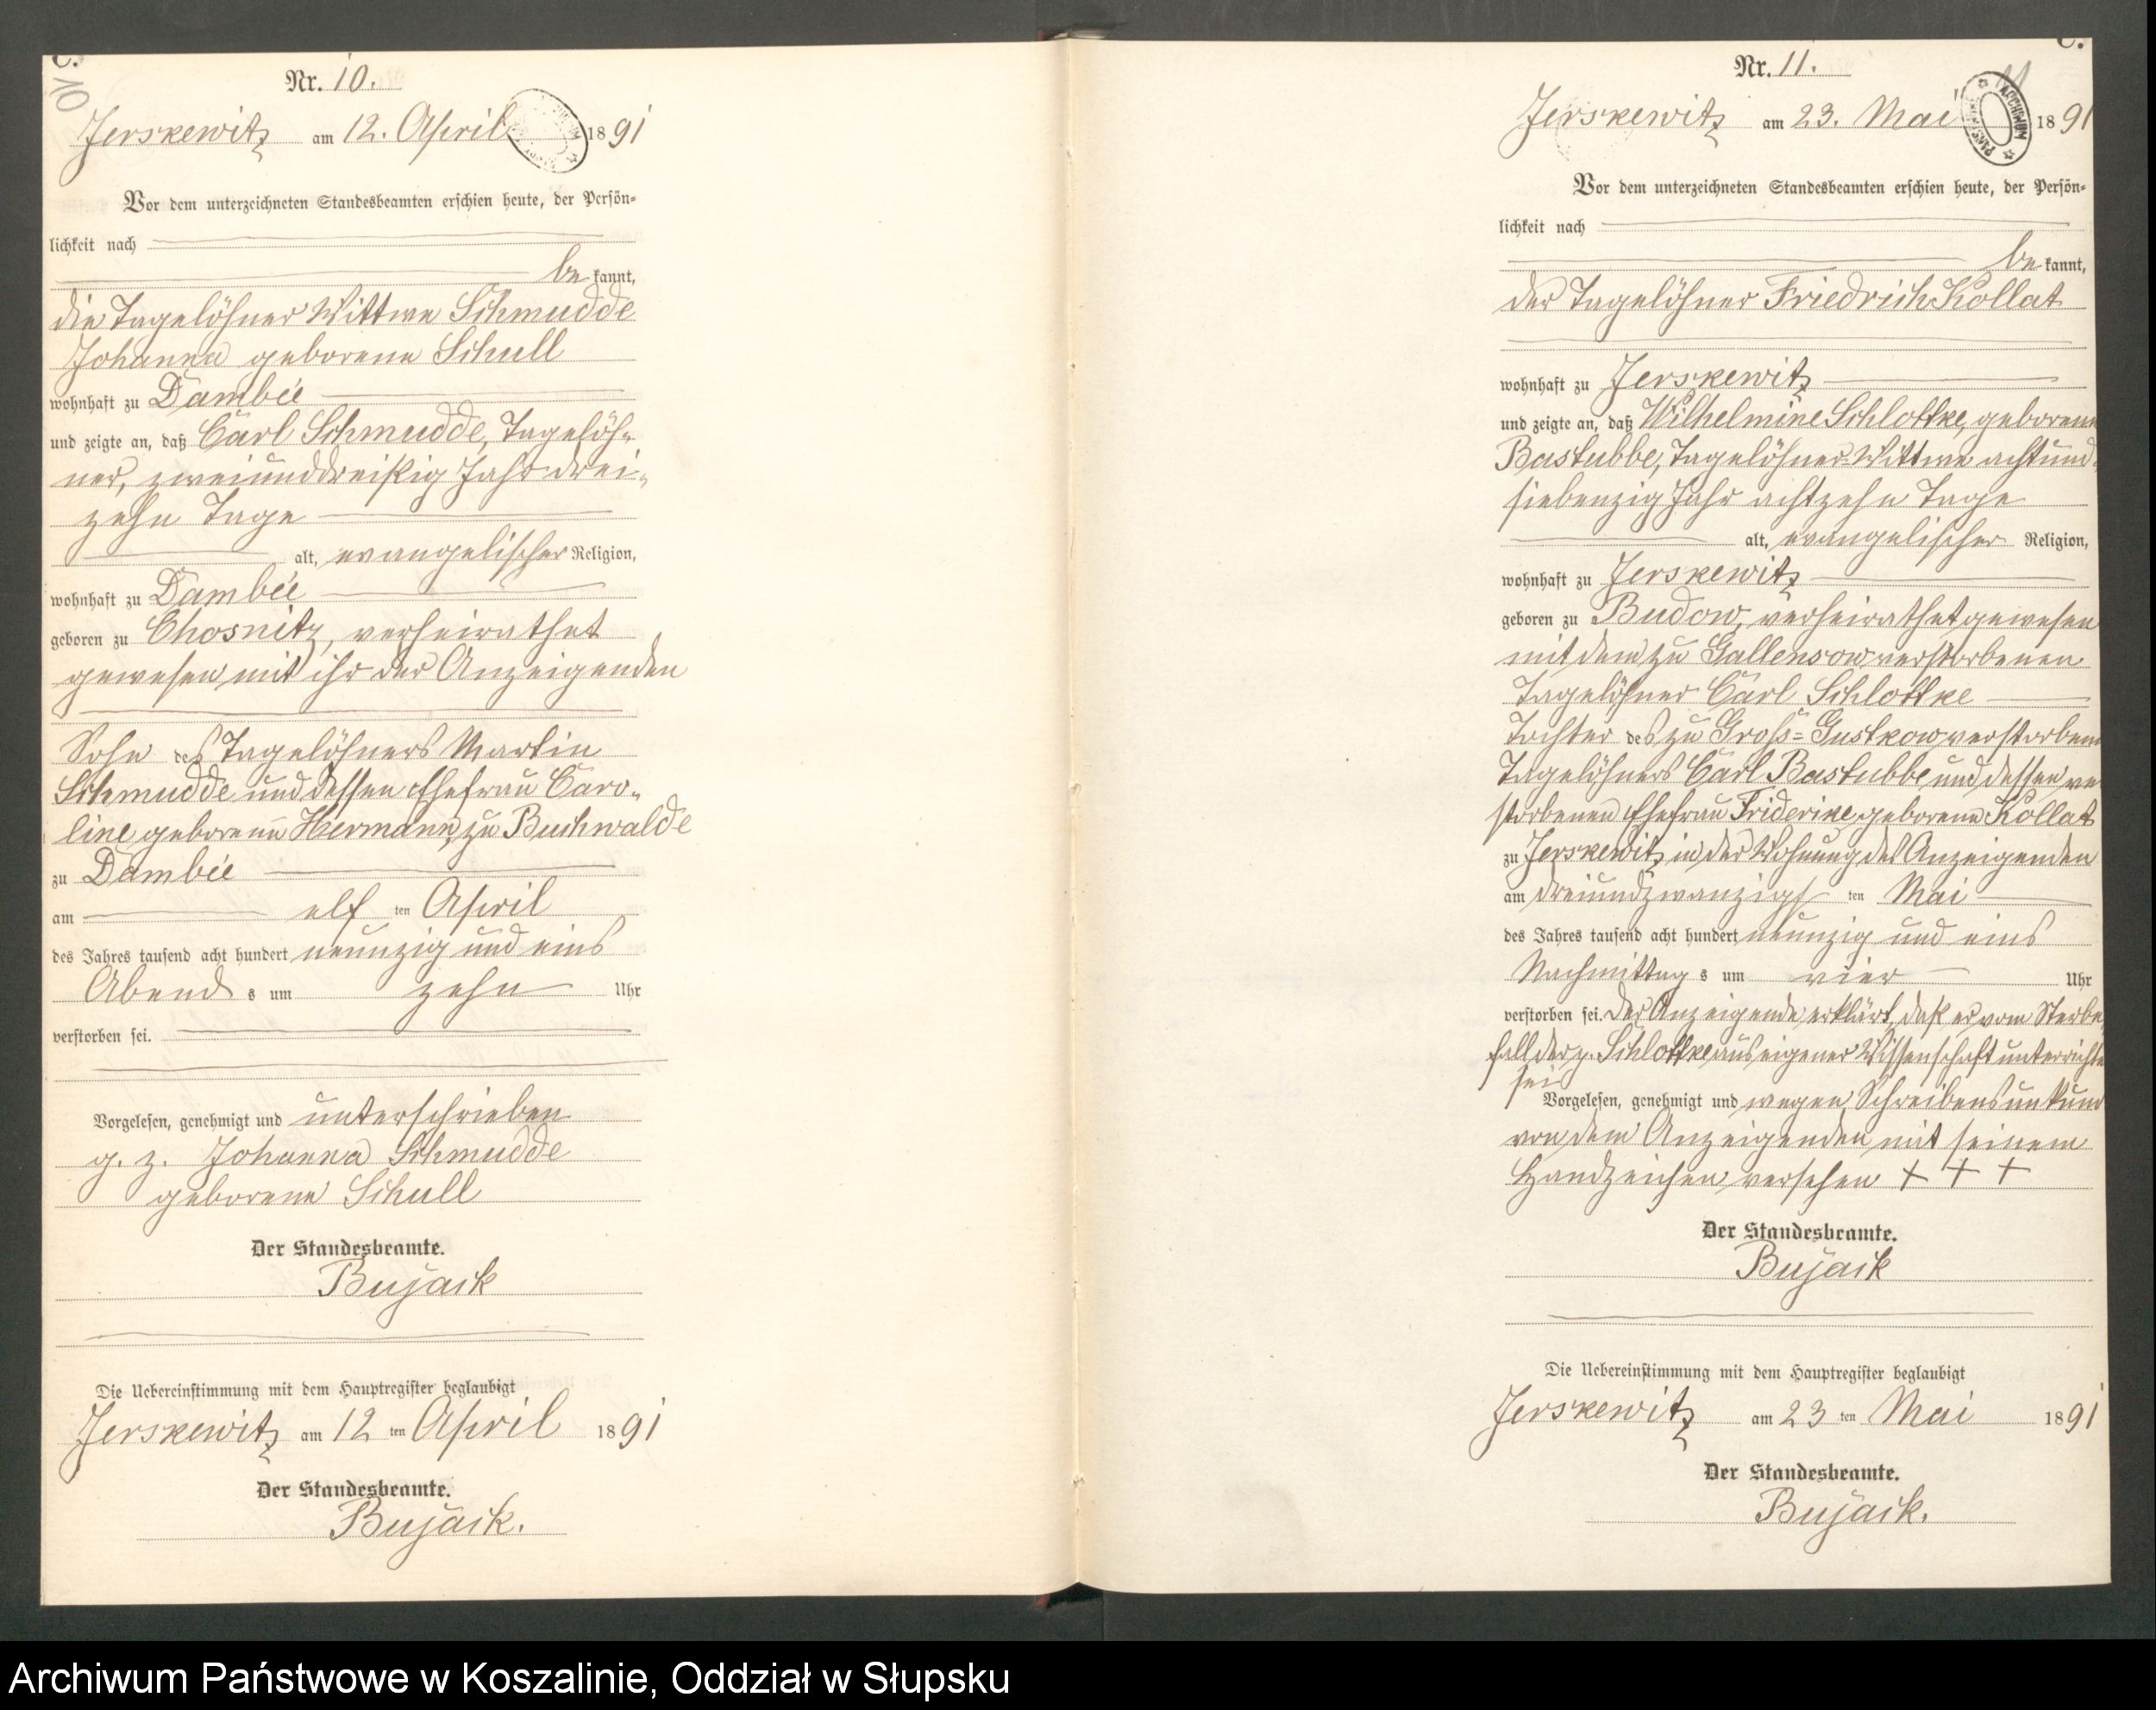 C.
10
Nr. 10.
Jerskewitz am 12. April 1891
Vor dem unterzeichneten Standesbeamten erschien heute, der Persön-
lichkeit nach
be kannt,
die Tagelöhner Wittwe Schmudde
Johanna geborene Schull
wohnhaft zu Dambee
und zeigte an, daß Carl Schmudde, Tagelöh-
ner, zweiunddreißig Jahr drei-
zehn Tage
alt, evangelischer Religion,
wohnhaft zu Dambee
geboren zu Chosnitz, verheirathet
gewesen mit ihr der Anzeigenden
Sohn des Tagelöhners Martin
Schmudde und dessen Ehefrau Caro-
line geborene Hermann, zu Buchwalde
zu Dambee
am elf ten April
des Jahres tausend acht hundert neunzig und eins
Abend s um zehn Uhr
verstorben sei.
Vorgelesen, genehmigt und unterschrieben
g. z. Johanna Schmudde
geborene Schull
Der Standesbeamte.
Bujack
Die Uebereinstimmung mit dem Hauptregister beglaubigt
Jerskewitz am 12 ten April 1891
Der Standesbeamte.
Bujack.
C.
11
Nr. 11.
Jerskewitz am 23. Mai 1891
ARCHIWUM
Vor dem unterzeichneten Standesbeamten erschien heute, der Persön-
lichkeit nach
be kannt,
der Tagelöhner Friedrich Kollat
wohnhaft zu Jerskewitz
und zeigte an, daß Wilhelmine Schlottke, geborene
Bastubbe, Tagelöhner-Wittwe achtund-
siebenzig Jahr achtzehn Tage
alt, evangelischer Religion,
wohnhaft zu Jerskewitz
geboren zu Budow, verheirathet gewesen
mit dem zu Gallensow verstorbenen
Tagelöhner Carl Schlottke
Tochter des zu Groß-Gustkow verstorbenen
Tagelöhners Carl Bastubbe und dessen ver
storbenen Ehefrau Friderike, geborene Kollat
zu Jerskewitz in der Wohnung des Anzeigenden
am dreiundzwanzigs ten Mai
des Jahres tausend acht hundert neunzig und eins
Nachmittag s um vier Uhr
verstorben sei. Der Anzeigende erklärt, daß er vom Sterbe
fall der p. Schlottke aus eigener Wissenschaft unterrichtet
sei
Vorgelesen, genehmigt und wegen Schreibensunkund
von dem Anzeigenden mit seinem
Handzeichen versehen + + +
Der Standesbeamte.
Bujack
Die Uebereinstimmung mit dem Hauptregister beglaubigt
Jerskewitz am 23 ten Mai 1891
Der Standesbeamte.
Bujack.
Archiwum Państwowe w Koszalinie, Oddział w Słupsku